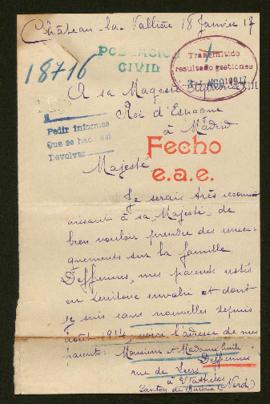 Château-la-Vallière 18 Janvier 17
POBLACION
CIVIL
18716
Transmitido
resultado gestiones
1917
A sa Magesté
Roi d'Espagne
à Madrid
Pedir informes
Que se hace
Devolver
Fecho
e.a.e.
Majesté
Je serais très recon
naissant à sa Majesté de
bien vouloir prendre des rensei
gnements sur la famille
Deffrennes, mes parents restés
en territoire envahi et dont
je suis sans nouvelles depuis
août 1914 voici l'adresse de mes
parents: Monsieur et Madame Emile
Deffrennes
rue de Lers
à Wattrelos
Canton de Roubaix (Nord)